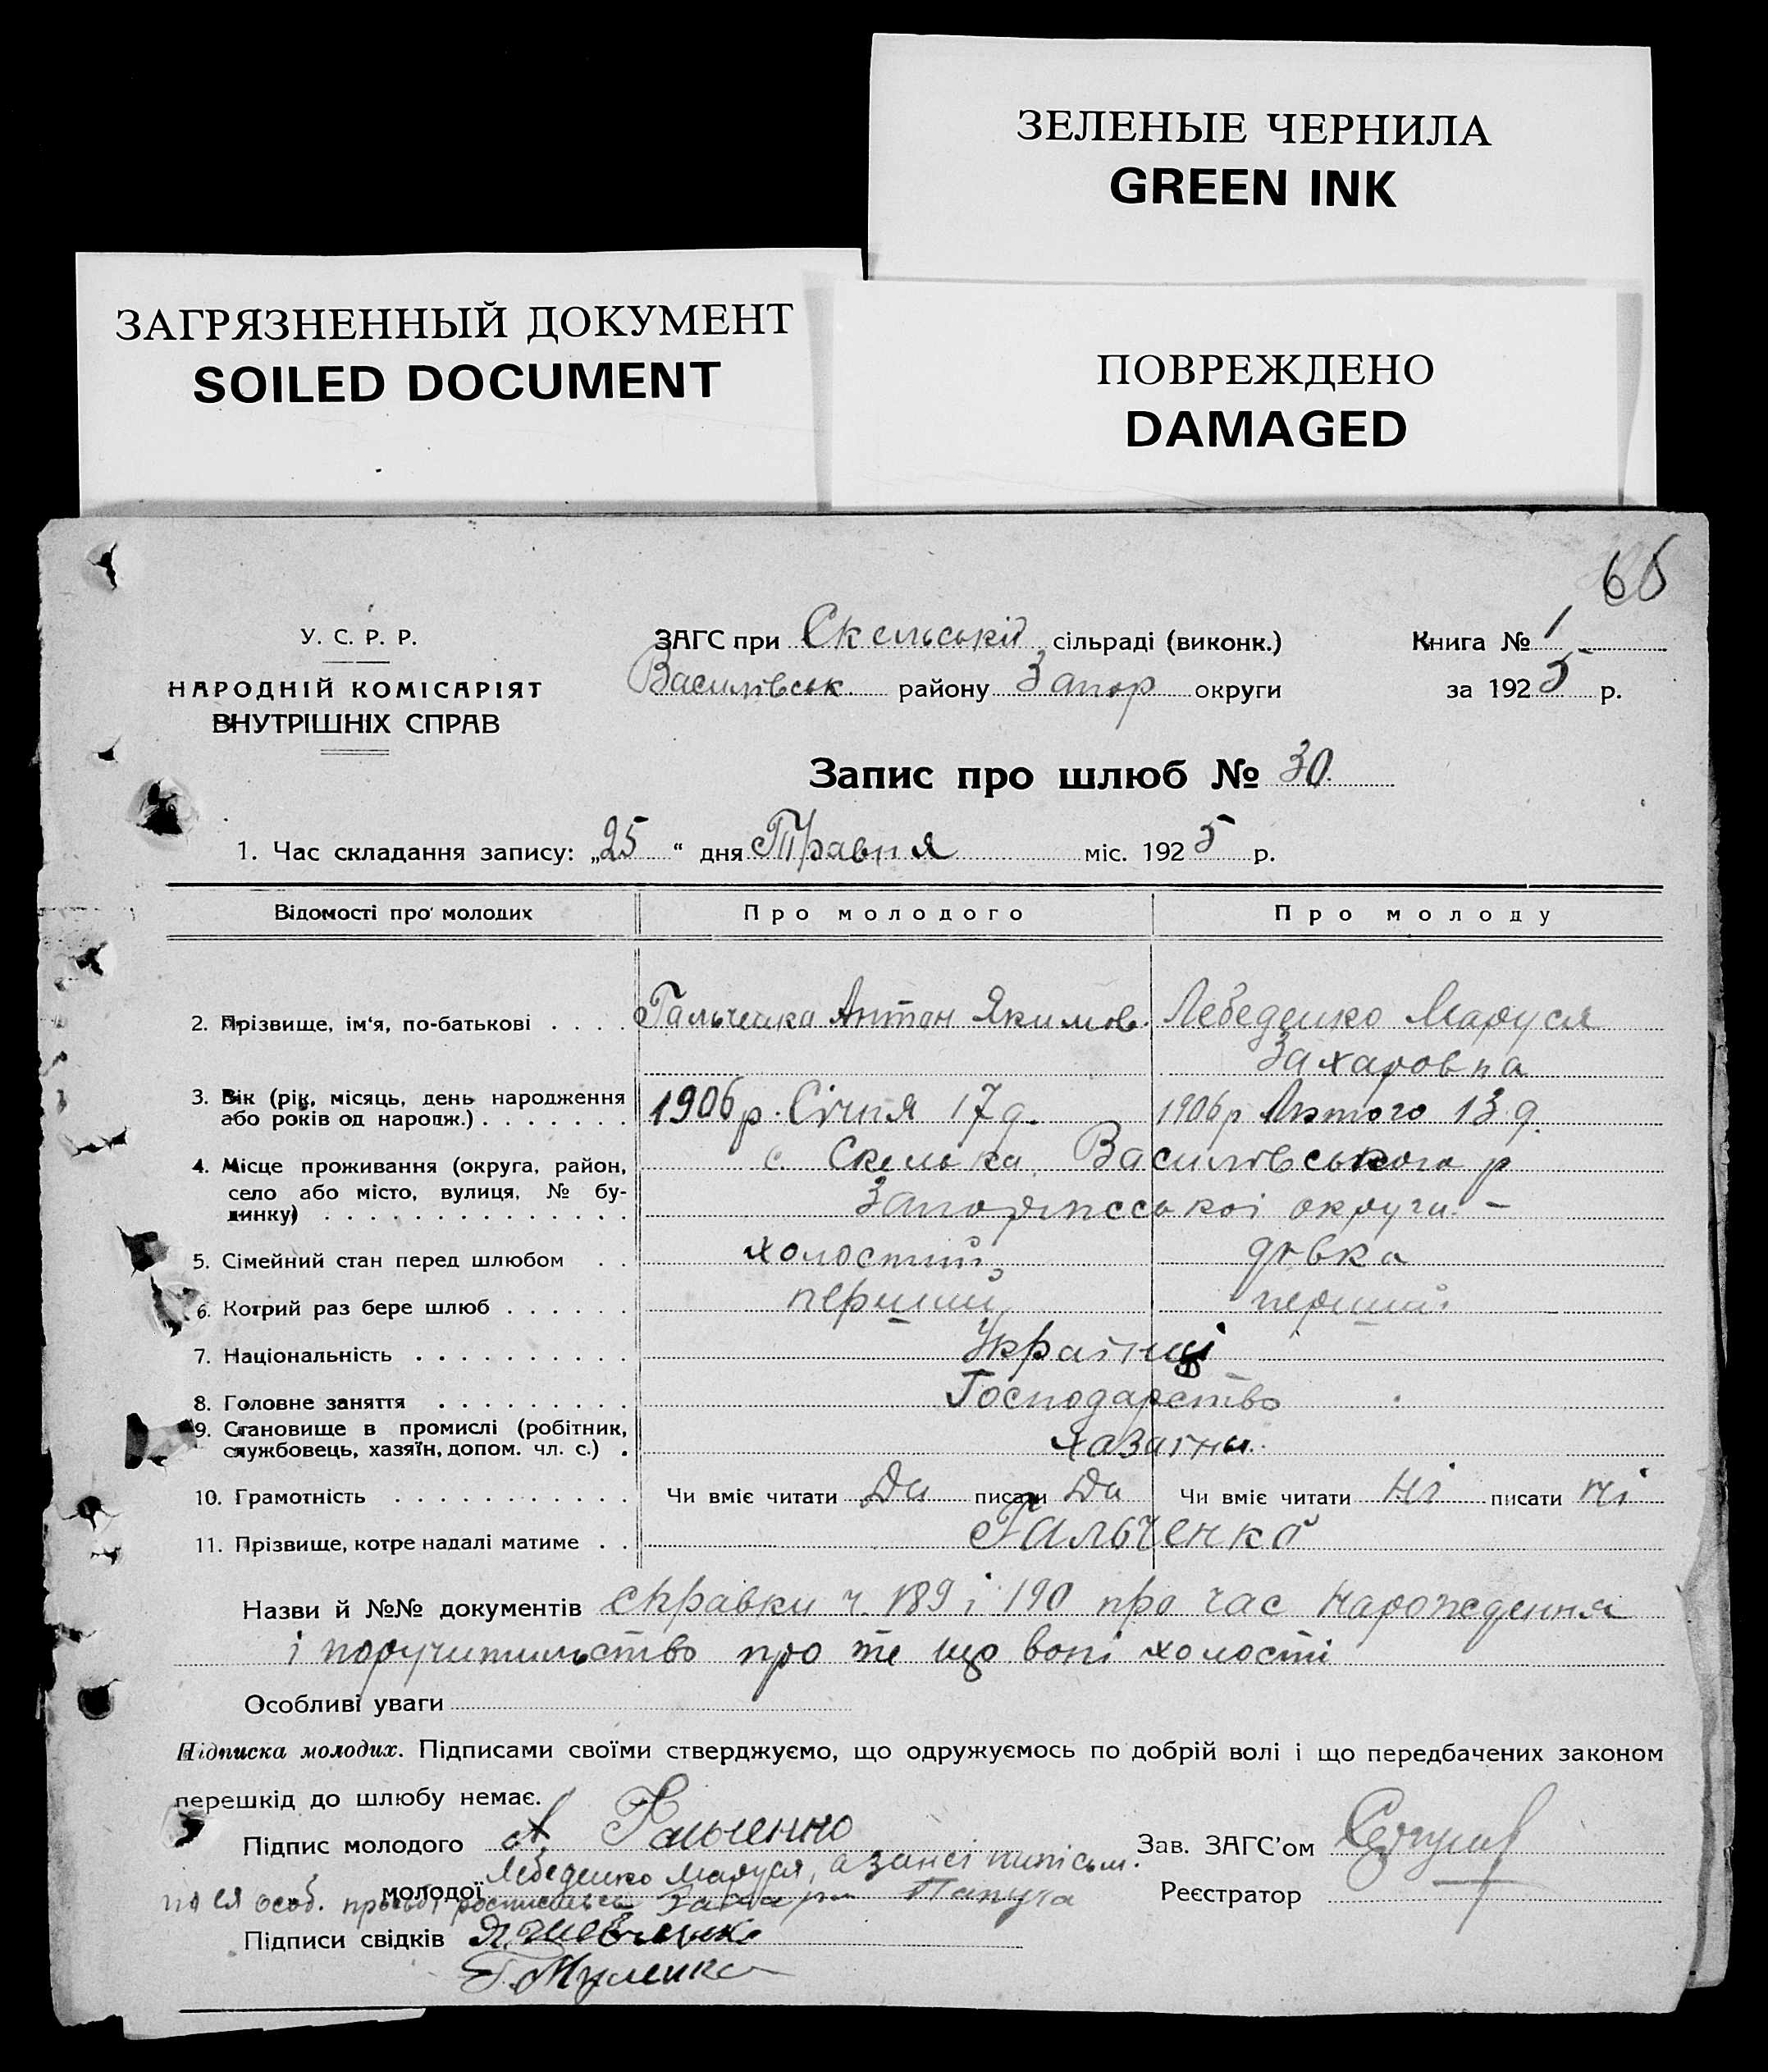 ЗЕЛЕНЫЕ ЧЕРНИЛА
GREEN INK
ЗАГРЯЗНЕННЫЙ ДОКУМЕНТ
SOILED DOCUMENT
ПОВРЕЖДЕНО
DAMAGED
66
У. С. Р. Р.
НАРОДНІЙ КОМІСАРІЯТ
ВНУТРІШНІХ СПРАВ
ЗАГС при Скельській сільраді (виконк.)
Василівськ. району Запор округи
Книга № 1
за 1925 р.
Запис про шлюб № 30.
1. Час складання запису: „25 “ дня Травня міс. 1925 р.
Відомості про молодих Про молодого Про молоду
2. Прізвище, ім'я, по-батькові . . . . Гальченко Антон Якимов. Лебеденко Маруся
Захаровна
3. Вік (рік, місяць, день народження
або років од народж.) . . . . . . . 1906 р. Січня 17 д. 1906 р Лютого 13 д.
4. Місце проживання (округа, район,
село або місто, вулиця, № бу-
динку) . . . . . . . . . . . . . .
с. Скелька Василівського р
Запоріжської округи. –
5. Сімейний стан перед шлюбом . . холостий дівка
6. Котрий раз бере шлюб . . . . . . перший перший
7. Національність . . . . . . . . . . Українці
8. Головне заняття . . . . . . . . . Господарство
9. Становище в промислі (робітник,
службовець, хазяїн, допом. чл. с.) . Хазаїни.
10. Грамотність . . . . . . . . . . . Чи вміє читати Да писати Да Чи вміє читати Ні писати Ні
11. Прізвище, котре надалі матиме . . Гальченко
Назви й №№ документів справки ч. 189 і 190 про час народження
і поручительство про те що вони холості
Особливі уваги
Підписка молодих. Підписами своїми стверджуємо, що одружуємось по добрій волі і що передбачених законом
перешкід до шлюбу немає.
Підпис молодого А Гальченко
Зав. ЗАГС'ом
Лебеденко Маруся, а
молодої
по ея особ.
Реєстратор
Підписи свідків